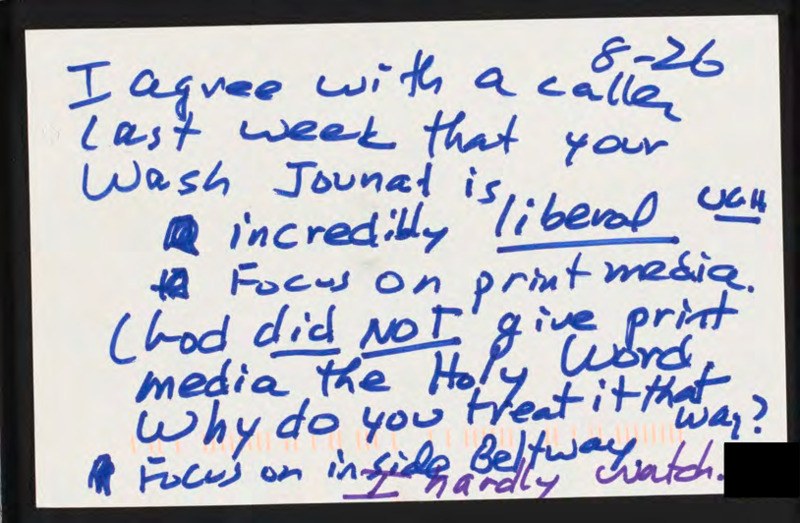 8-26
I agree with a caller
last week that your
Wash Jounal is
incredibly liberal UGH
Focus on print media.
(God did NOT give print
media the Holy Word,
Why do you treat it that
way?
Focus on inside Beltway
I hardly watch.